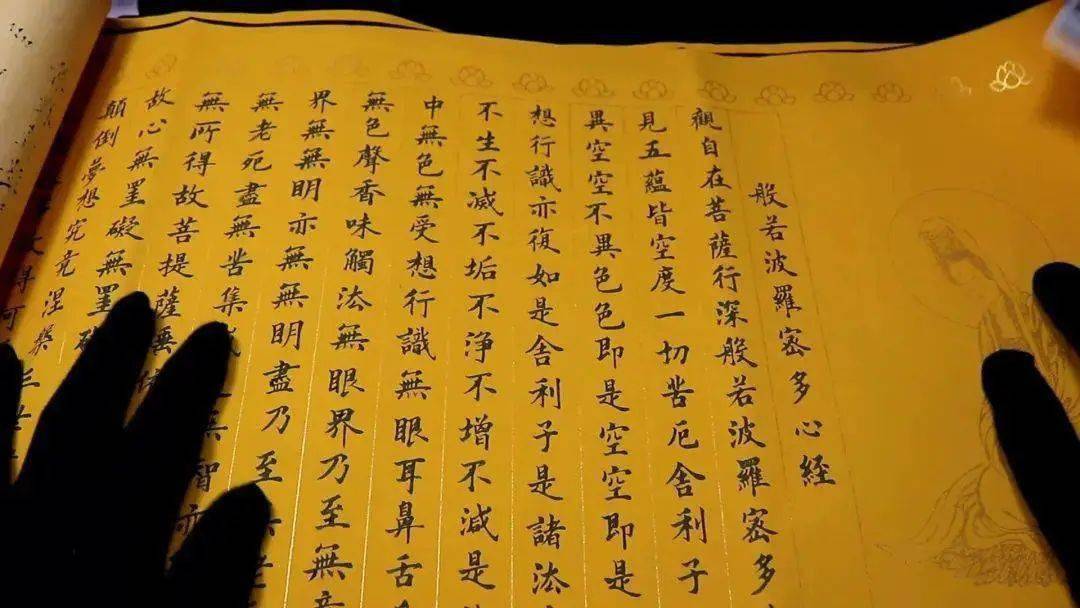 般若波羅密多心經
觀自在菩薩行深般若波羅密多
見五蘊皆空度一切苦厄舍利子
異空空不異色色即是空空即是
想行識亦復如是舍利子是諸法
不生不滅不垢不淨不增不減是
中無色無受想行識無眼耳鼻舌
無色聲香味觸法無眼界乃至無意
界無無明亦無無明盡乃至無老
無老死盡無苦集滅無智亦
無所得故菩提薩埵依
故心無罣礙無罣礙
顛倒夢想究竟涅槃
得可